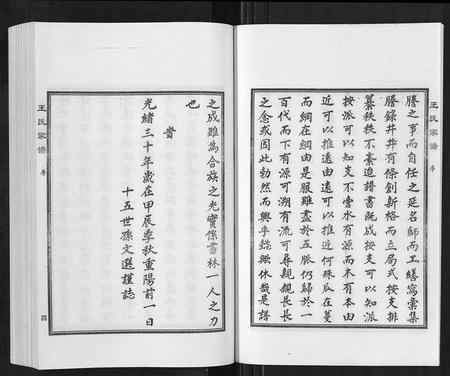 王氏家譜 序
謄之事而自任之延名師而工繕寫彙集
謄錄井井有條創新格而立局式按支排
纂秩秩不紊迨譜書既成按支可以知派
按派可以知支不啻水有源而木有本由
近可以推遠由遠可以推近何殊瓜在蔓
而綱在綱由是服雖盡於五脈仍歸於一
百代而下有源可溯有流可尋親親長長
之念或因此勃然而興乎懿歟休哉是譜
之成雖為合族之光實係書林一人之力
也
當
光緒三十年歲在甲辰季秋重陽前一日
十五世孫文選謹誌
王氏家譜 序
四